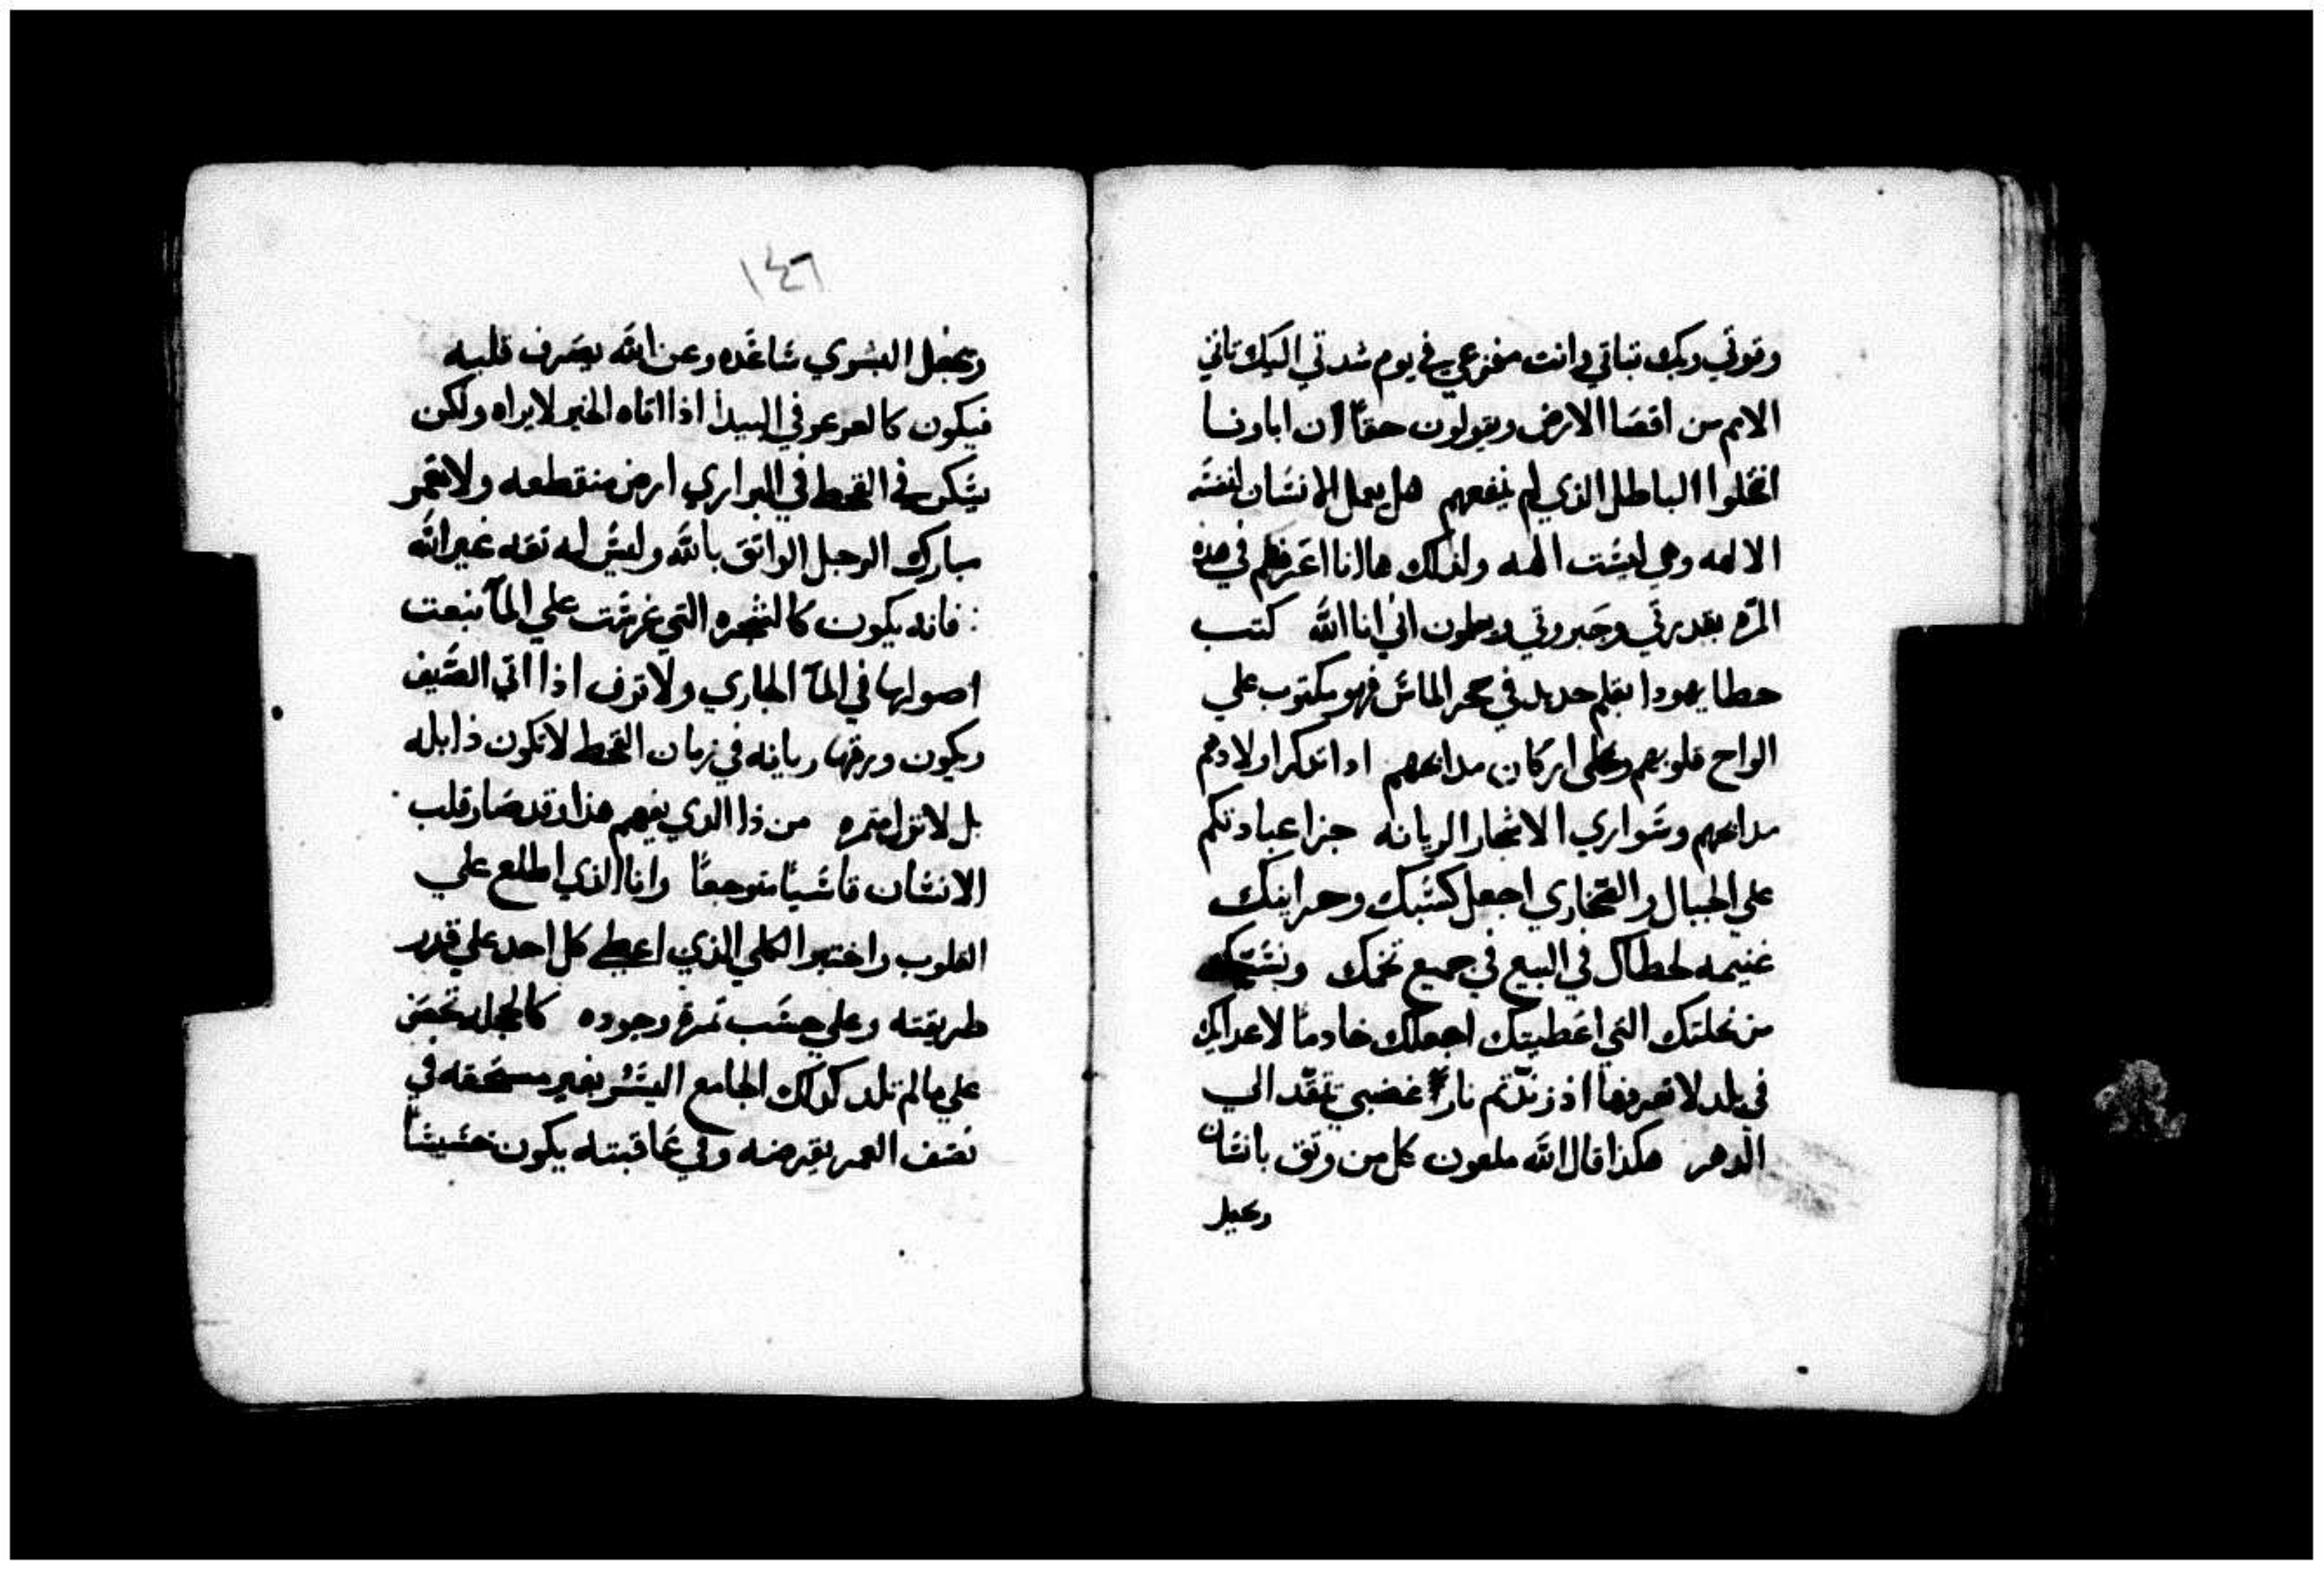 وقوتي وبك تباتي وانت مفزعي في يوم شدتي اليك تاتي
الامم من اقصا الارض ويقولون حقا ان اباونا
انتحلوا الباطل الذي لم ينفعهم هل يعمل الانسان لنفسه
الالهه وهي ليست الهه ولذلك هاانا اعرفهم في هذه
المره بقدرتي وجبروتي ويعلمون اني انا الله كتب
خطا يهودا بقلم حديد في حجر الماس فهو مكتوب علي
الواح قلوبهم وعلى اركان مدابحهم اداتدكر اولادهم
مدابحهم وسواري الاشجار الريانه جزا عبادتكم
علي الجبال والصحاري اجعل كسبك وخزاينك
غنيمه لخطاك في البيع في جميع تخمك
من نحلتك التي اعطيتك اجعلك خادما لاعدايك
في بلد لا تعرفها اذ زندتم نار غضبي تتقد الي
الدهر هكذا قال الله ملعون كل من وثق بانسان
ويجعل
١٤٦
ويجعل البشري ساعده وعن الله يصرف قلبه
فيكون كالعرعر في البيدا اذا اتاه الخير لا يراه ولكن
يسكن في القحط في البراري ارض منقطعه ولا تعمر
مبارك الرجل الواثق بالله وليس له تقه غير الله
فانه يكون كالشجره التي غرست علي المآ نبعت
اصولها في المآ الجاري ولا ترف اذا اتي الصيف
ويكون ورقها ريانه في زمان القحط لا تكون ذابله
بل لا تزل متمره من ذا الدي يفهم هذا وقد صار قلب
الانسان قاسيا متوجعا وانا الذي اطلع علي
القلوب واختبر الكلي الذي اعطي كل احد علي قدر
طريقته وعلي حسب تمرة وجوده كالحجله تحضن
علي ما لم تلد كذلك الجامع اليسر بغير مستحقه في
نصف العمر يقرضه وفي عاقبته يكون خسيسا